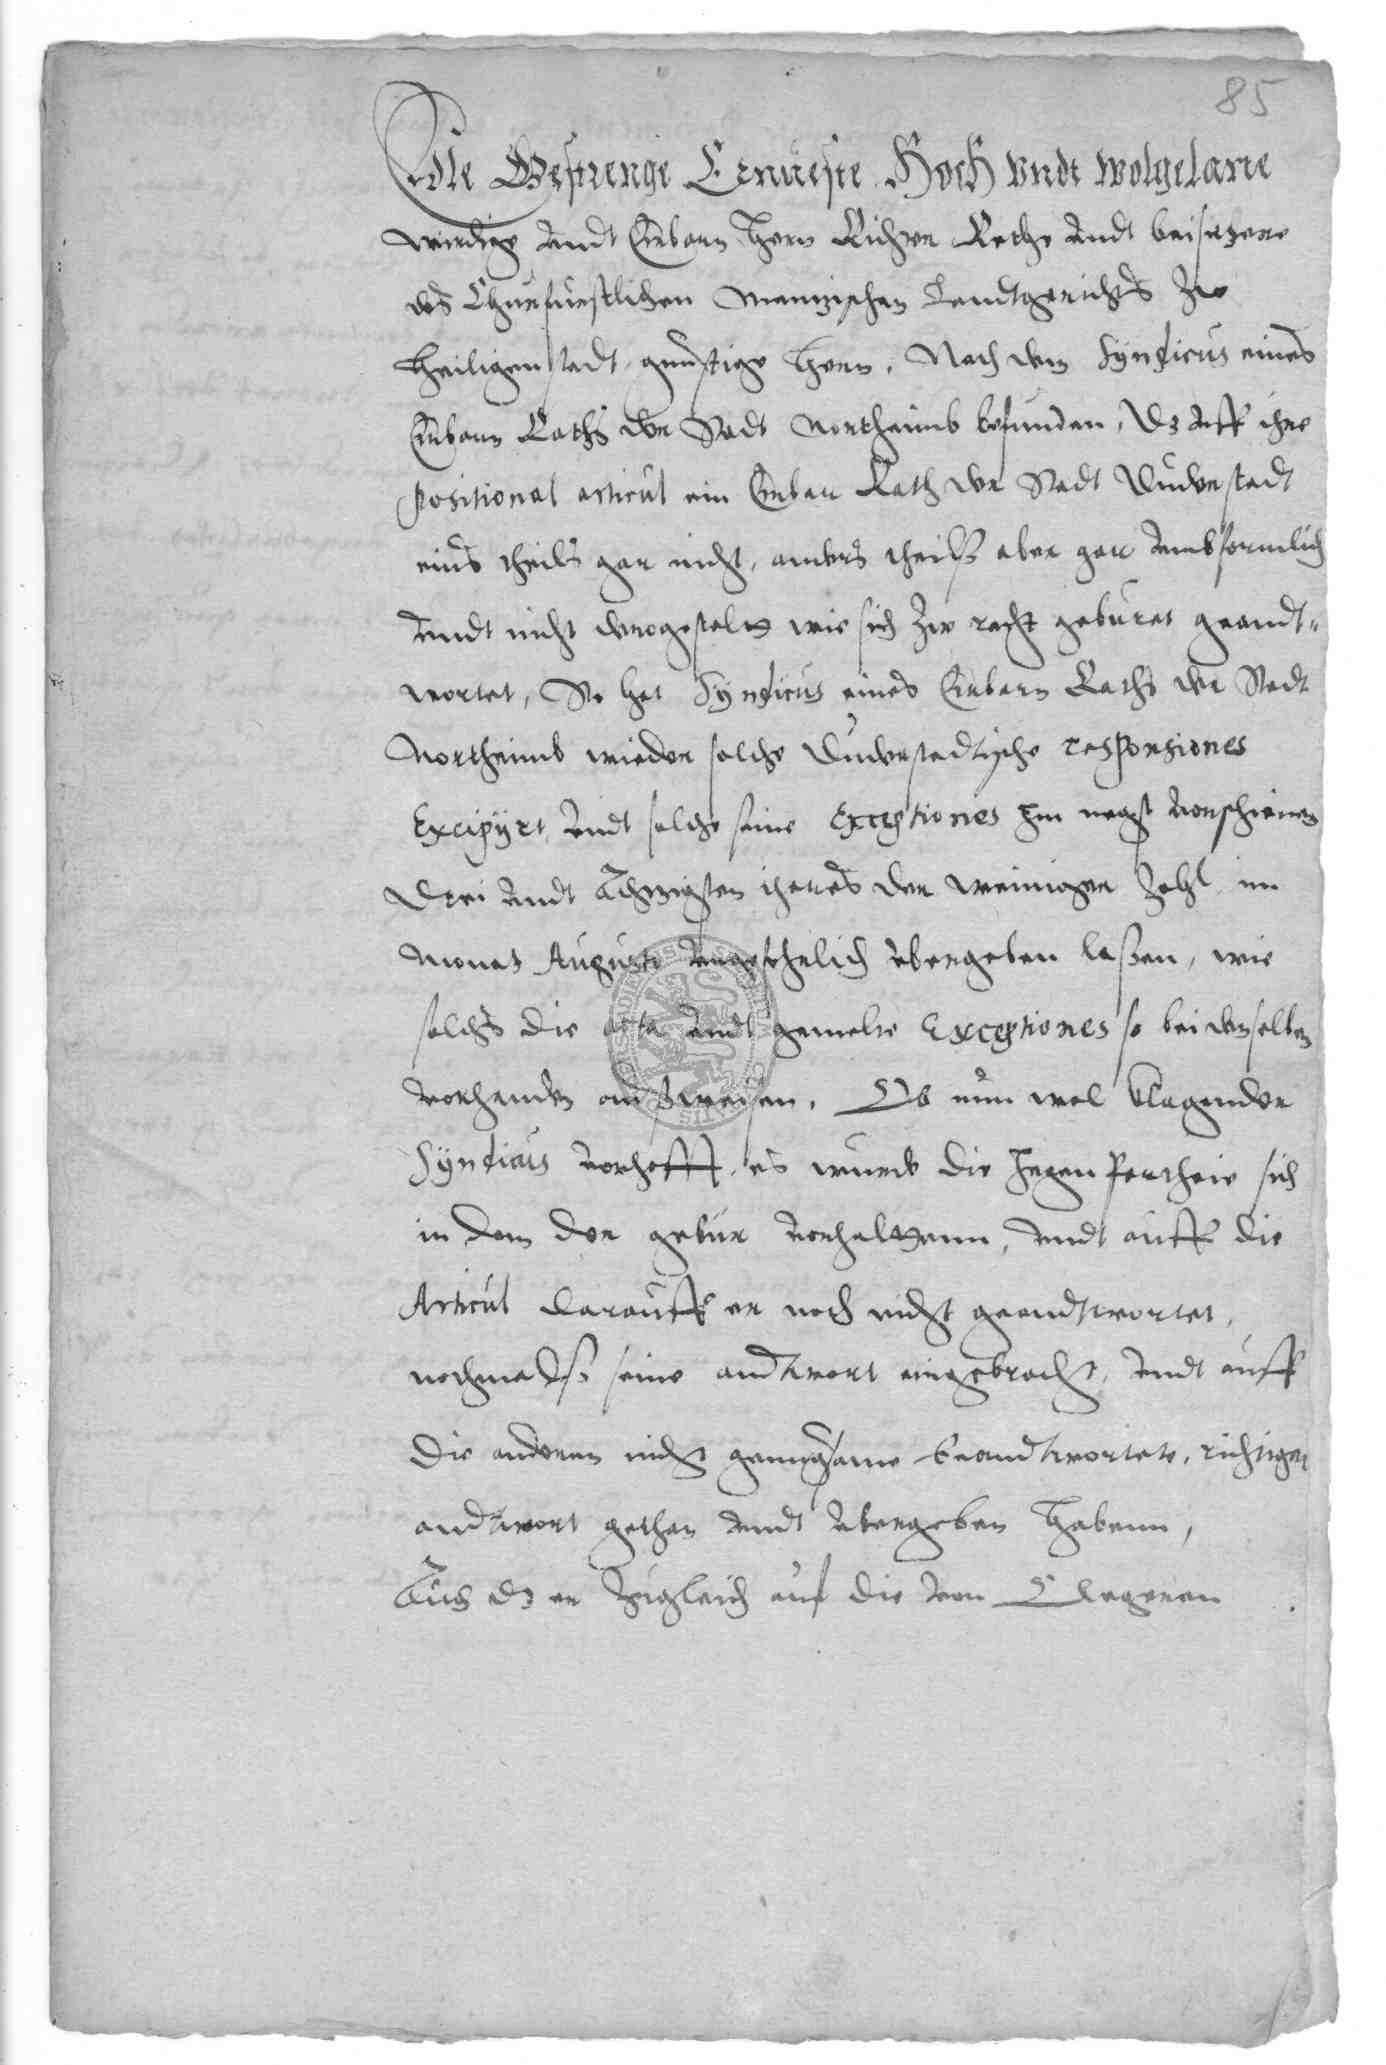 85
Edle Gestrenge Ernueste Hoch vndt wolgelarte
wirdige vndt Erbarn Hern Richter Rethe vndt beisitzere
des Churfurstlichen Meintzischen Landtgerichts zw
Heiligenstadt, gunstige Hern, Nach dem Syndicus eines
Erbarn Raths der Stadt Northeimb befunden, dz auff ihre
positional articul ein Erbar Rath der Stadt Duderstadt
eins theils gar nicht, anders theilß aber gar vnnbformlich
vndt nicht dermgestalt wie sich zw recht geburet geandt-
wortet, So hat Syndicus eines Erbarn Raths der Stadt
Northeimb wieder solche Duderstadtische responsiones
Excipyrt, vndt solche seine Exceptiones Im negst vorschienen
drei vndt Achtzigsten ihares der weiniger Zahl im
Monat Augusti vngefehrlich vbergeben laßen, wie
solchs die acta vndt gemelte Exceptiones so bei denselben
vorhanden außweisen. Ob nun wol klagender
Syndicus vorhofft, es wurde die Jegen Partheie sich
in dem der gebur vorhaltenn, vndt auff die
Articul darauff er noch nicht geandtwortet,
nochmalß seine andtwort eingebracht, vndt auff
die anderen nicht genugsame beandtwortete, richtige
andtwort gethan vndt vbergeben Habenn,
Aus dz er zugleich auf die von Clegeren